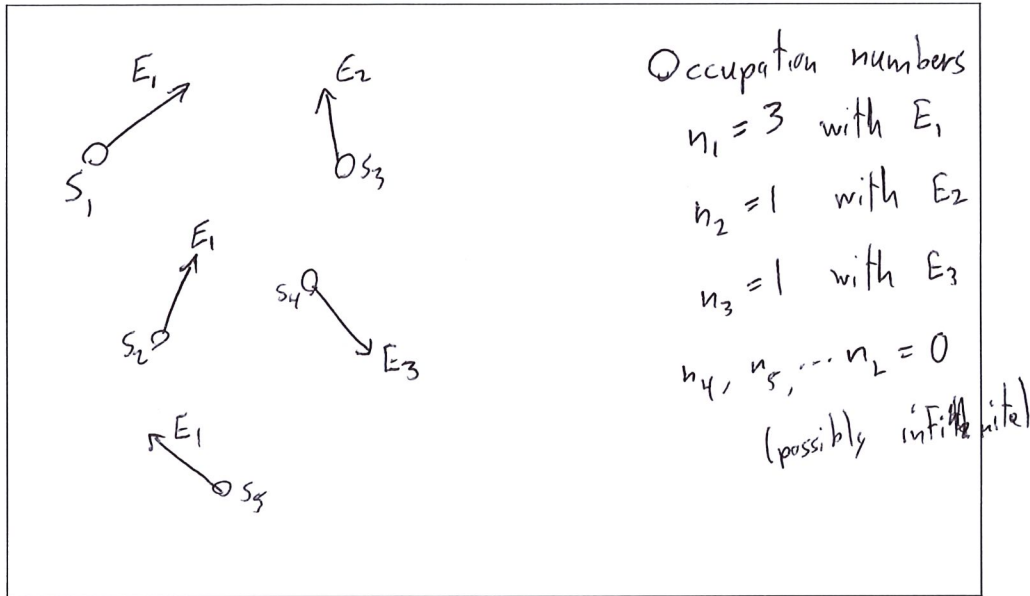 E₁
S₁
E₂
S₃
E₁
S₂
S₄
E₃
E₁
S₅
Occupation numbers
n₁ = 3 with E₁
n₂ = 1 with E₂
n₃ = 1 with E₃
n₄, n₅, ... n_L = 0
(possibly infinite)